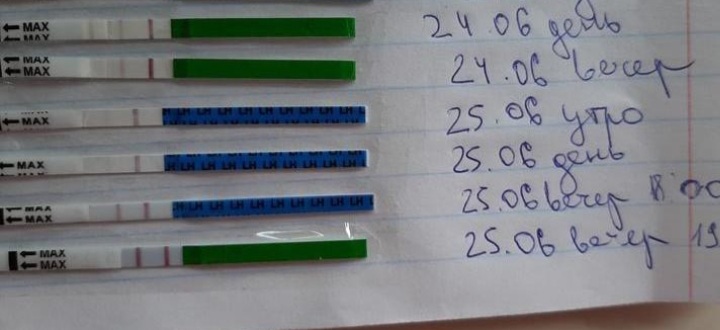 MAX
MAX
24.06 день
MAX
MAX
24.06 вечер
MAX
MAX
LH LH LH LH LH LH LH LH LH
25.06 утро
MAX
MAX
LH LH LH LH LH LH LH LH LH
25.06 день
MAX
MAX
LH LH LH LH LH LH LH LH LH
25.06 вечер 18:00
MAX
MAX
25.06 вечер 19